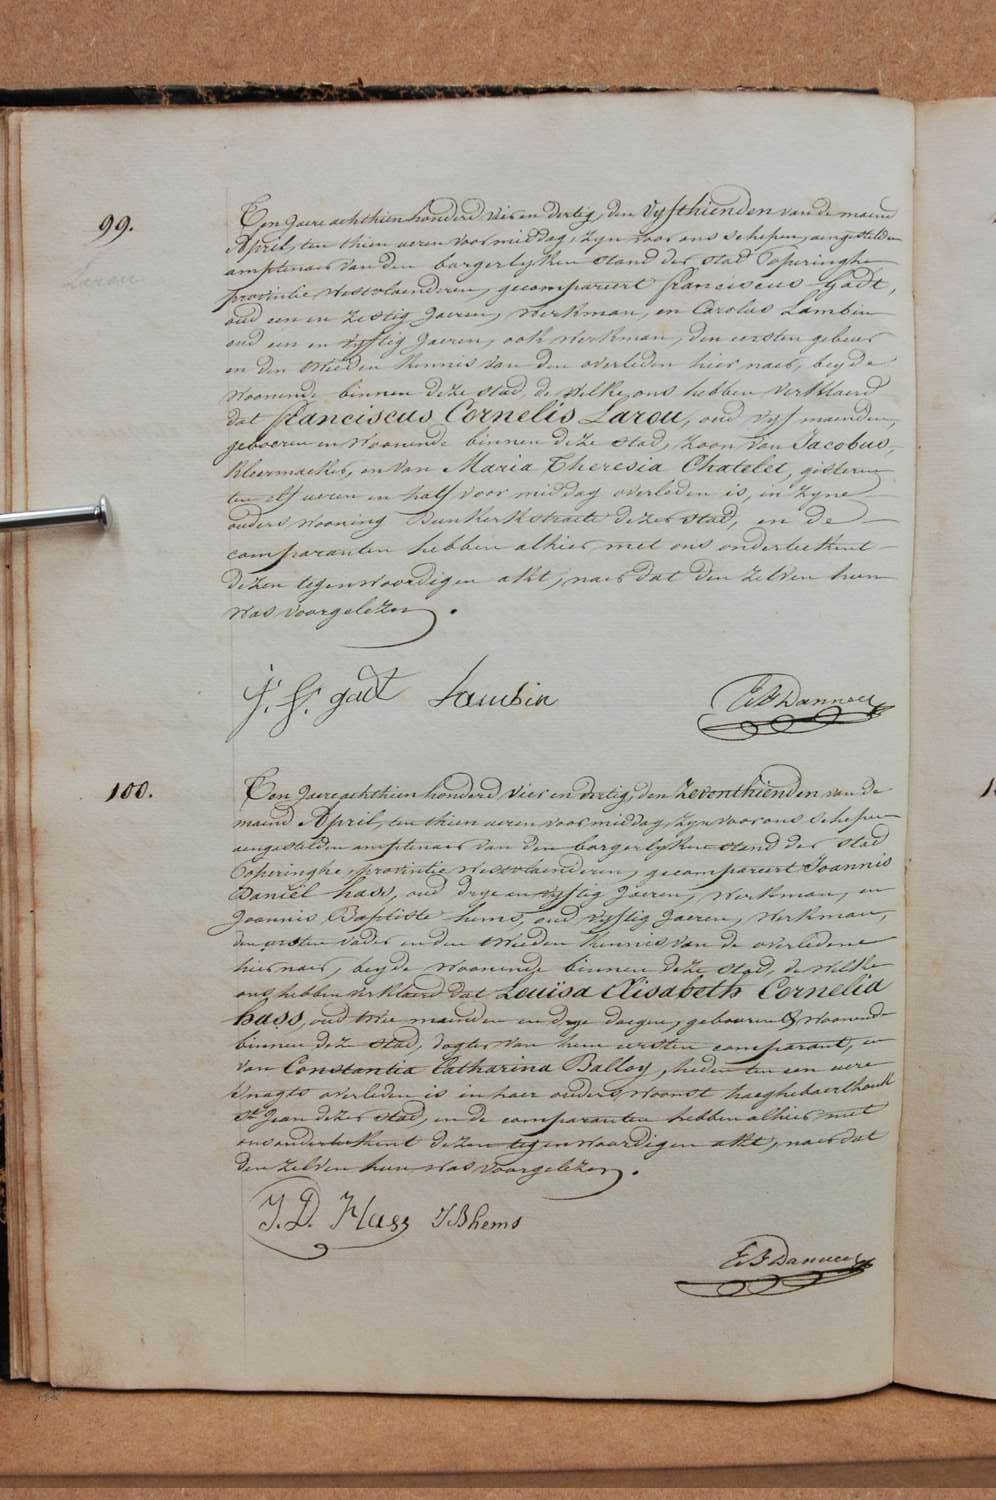 99.
Larou
Ten Jaere achthien honderd vier en dertig, den Vyfthienden van de maend
April, ten thien ueren voormiddag, zyn voor ons schepen, aengestelden
amptenaer van den borgerlyken stand der stad Poperinghe
provintie Westvlaenderen, gecompareert franciscus Gadt,
oud een en zestig Jaeren, Werkman, en Carolus Lambin
oud een en vyftig Jaeren, ook Werkman, den eersten gebeur
en den tweeden kennis van den overleden hier naer, beyde
woonende binnen deze stad, de welke ons hebben verklaerd
dat franciscus Cornelis Larou, oud vyf maenden,
gebooren en Woonende binnen deze stad, zoon van Jacobus,
kleermaeker, en van Maria Theresia Chatelet, gisteren
ten elf ueren en half voor middag overleden is, in zyne
ouders wooning Dunkerkstraete dezer stad, en de
comparanten hebben alhier met ons onderteekent
dezen tegenwoordigen akt, naer dat den zelven hun
was voorgelezen.
J. F. gadt Lambin
100.
Ten Jaere achthien honderd vier en dertig, den Zeventhienden van de
maend April, ten thien ueren voormiddag, zyn voor ons schepen
aengestelden amptenaer van den borgerlyken stand der stad
Poperinghe, provintie Westvlaenderen, gecompareert Joannis
Daniël hass, oud drye en vyftig Jaeren, Werkman, en
Joannis Baptiste hems, oud vyftig Jaeren, Werkman,
den eersten vader en den tweeden kennis van de overledene
hier naer, beyde woonende binnen deze stad, de welke
ons hebben verklaerd dat Louïsa Elisabeth Cornelia
hass, oud twee maenden en drye daegen, gebooren & woonende
binnen deze stad, dogter van hun eersten comparant, en
van Constantia Catharina Balloy, heden ten een uere
s'nagts overleden is in haer ouders woonst haeghebaerthoek
St Jean dezer stad, en de comparanten hebben alhier met
ons onderteekent dezen tegenwoordigen akt, naer dat
den zelven hun was voorgelezen.
J. D. Hass JBhems